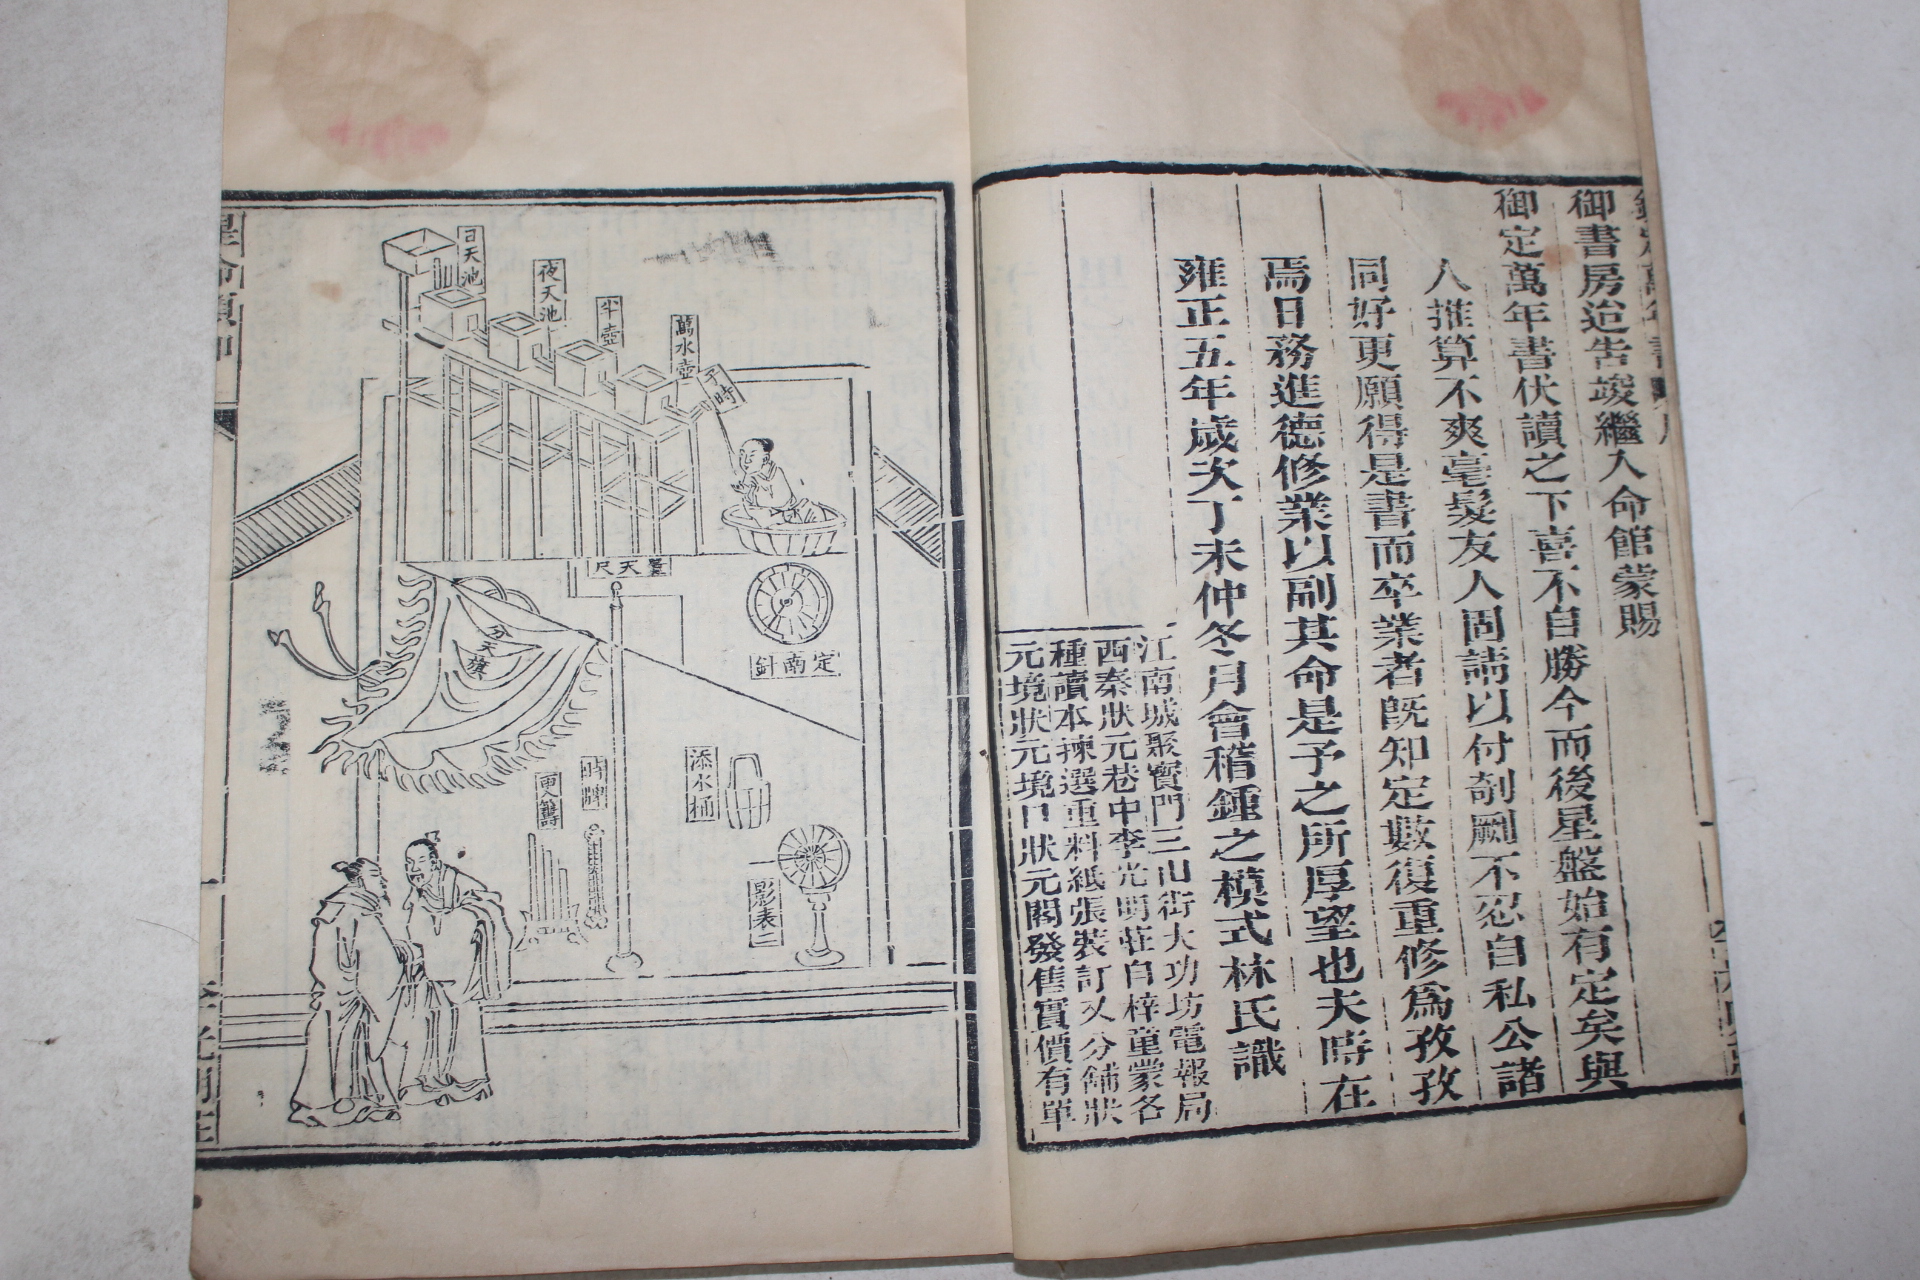 御書房迨告竣繼入命館蒙賜
御定萬年書伏讀之下喜不自勝今而後星盤始有定矣與
人推算不爽毫髮友人固請以付剞劂不忍自私公諸
同好更願得是書而卒業者既知定數復重修爲孜孜
焉日務進德修業以副其命是予之所厚望也夫時在
雍正五年歲次丁未仲冬月會稽鍾之模式林氏識
江南城聚寳門三山街大功坊電報局
西秦狀元巷中李光明莊自梓童蒙各
種讀本揀選重料紙張裝訂又分鋪狀
元境狀元境口狀元閣發售實價有單
日天池
夜天池
平壺
萬水壺
子時
量天尺
定南針
分天旗
時牌
更籌
添水桶
影表二